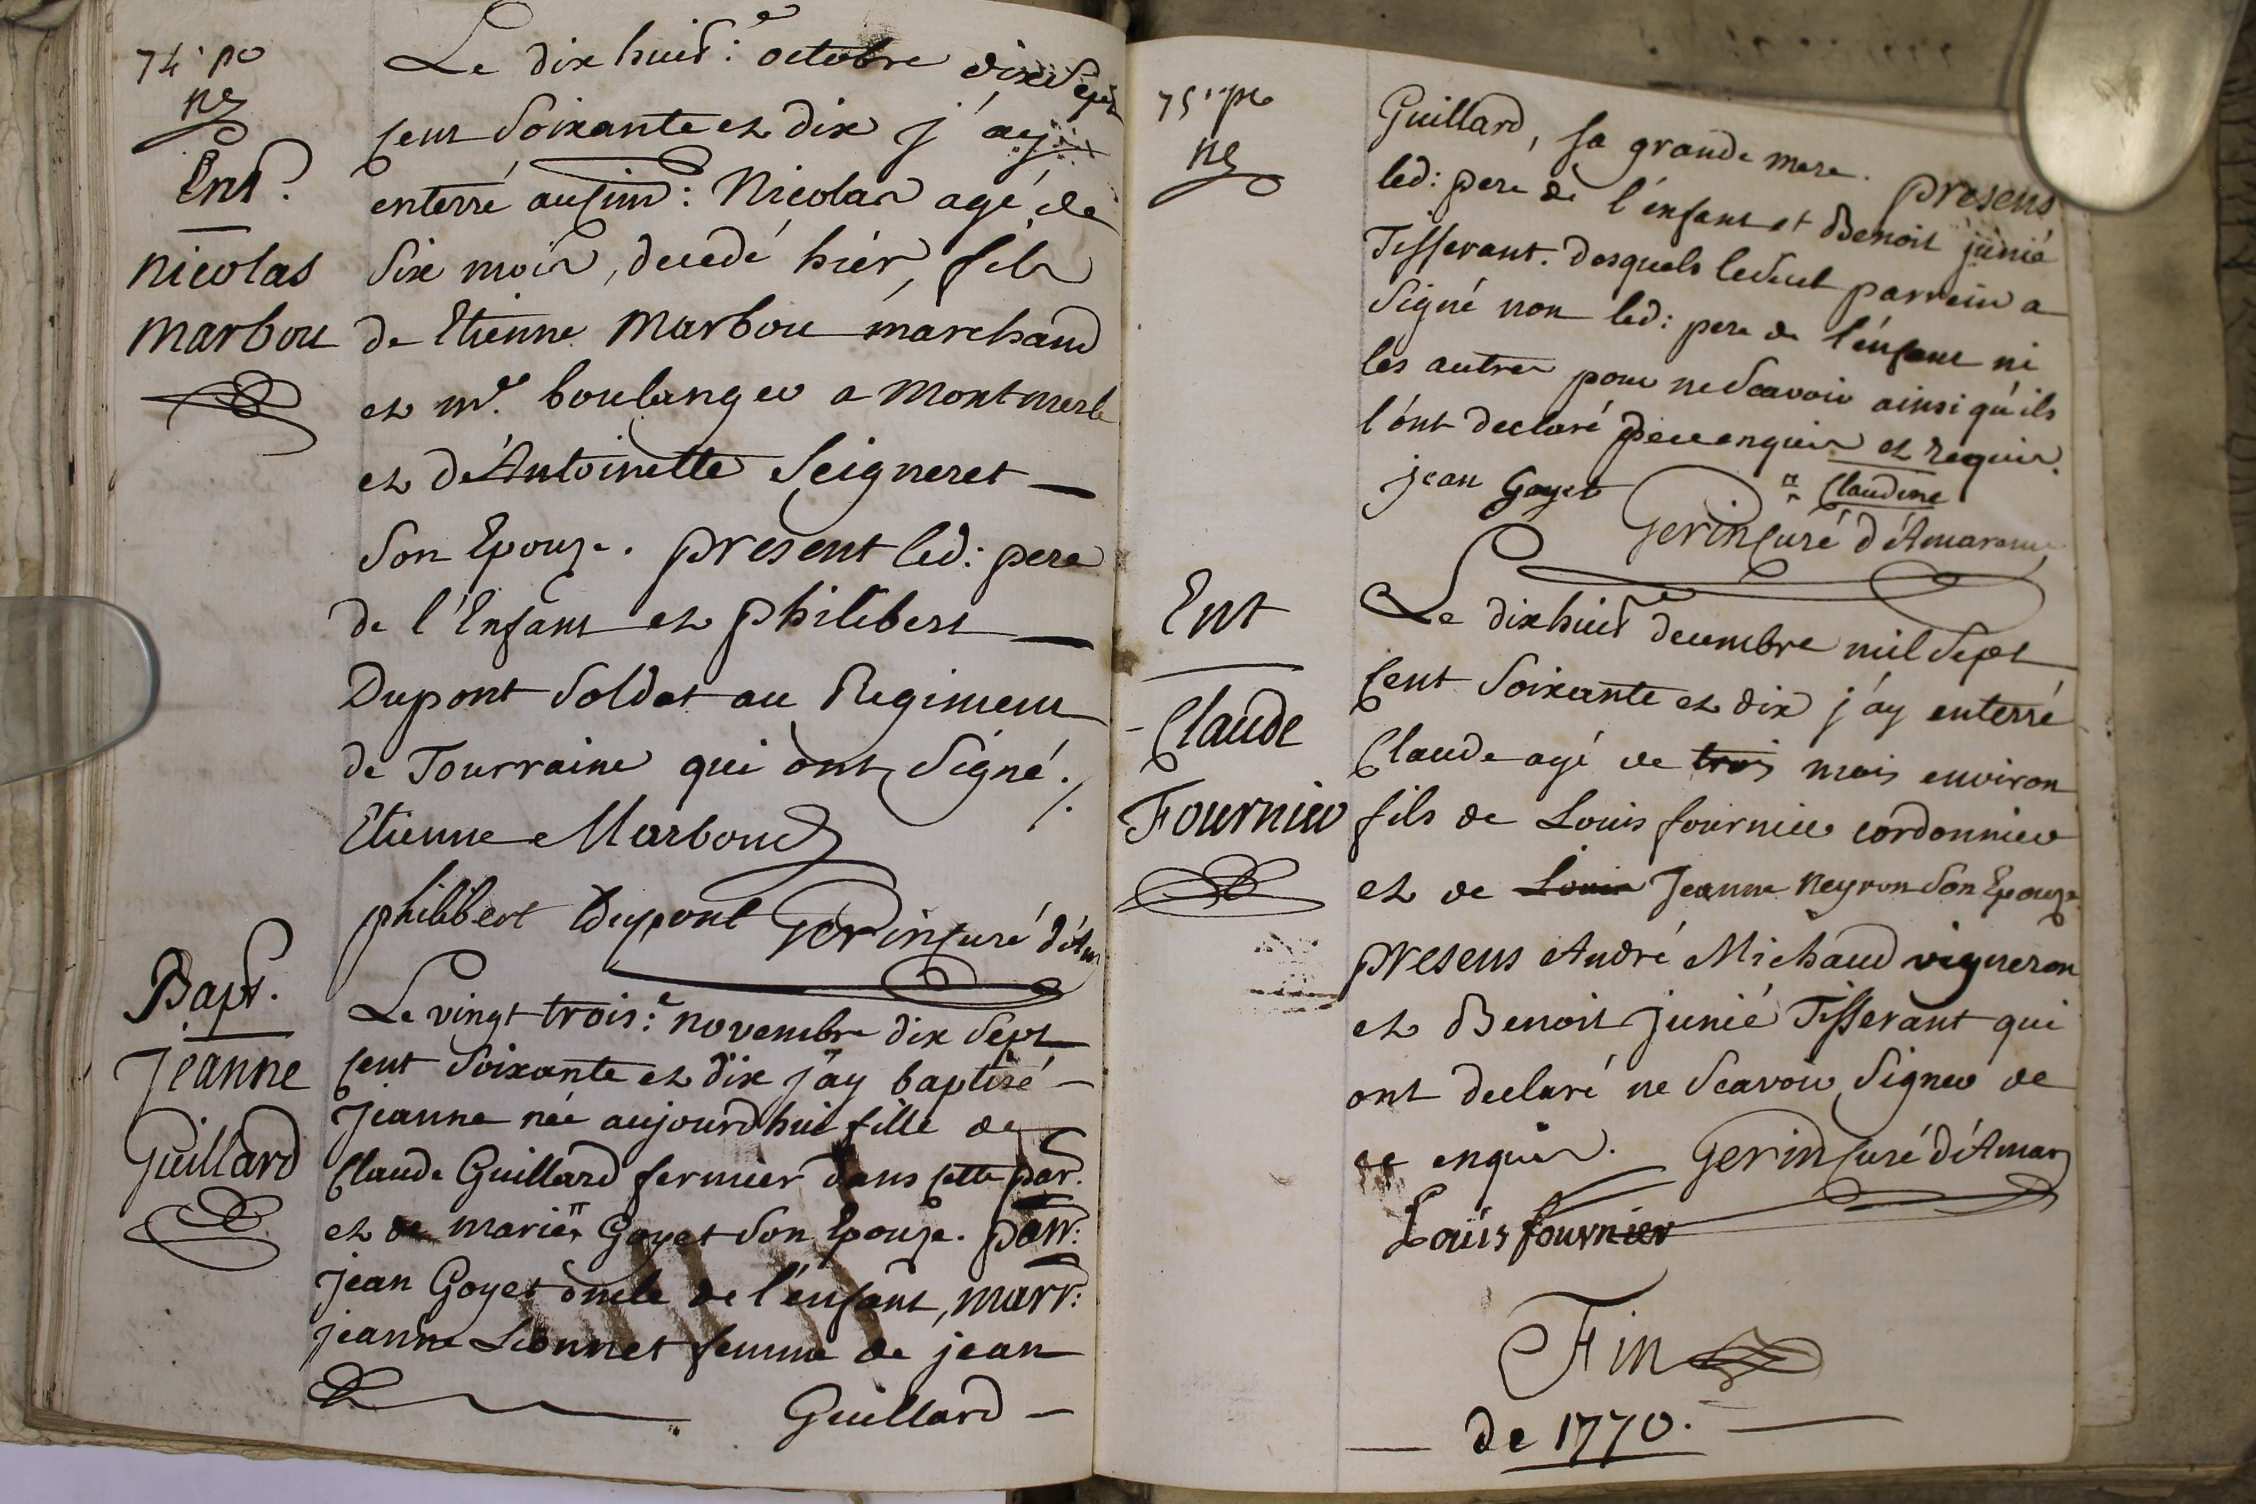 74.e po
Ent.
nicolas
marbou
Le dix huit.e octobre dix Sept
cent Soixante et dix j'ay
enterré au cim: Nicolas agé de
Six mois, decedé hier, fils
de Etienne Marbou marchand
et m.e boulanger a Montmerle
et d'Antoinette Seigneret
Son Epouze. present led: pere
de l'Enfant et philibert
Dupont Soldat au Regiment
de Tourraine qui ont Signé ./.
Etienne Marboud
philibert Dupont Gerin curé d'Am
Bapt.
Jeanne
Guillard
Le vingt trois.e novembre dix Sept
cent Soixante et dix j'ay baptisé
Jeanne née aujourd'hui fille de
Claude Guillard fermier dans cette par.
et de marie Goyet Son Epouze. parr:
jean Goyet oncle de l'enfant, marr:
jeanne Lionnet femme de jean
Guillard
75.e po
Guillard, Sa grande mere. presens
led: pere de l'enfant et Benoit junié
Tisserant. desquels ledeul parrein a
Signé non led: pere de l'enfant ni
les autres pour ne Scavoir ainsi qu'ils
l'ont declaré de ce enquis et requis.
jean Goyet
Claudine
Gerin curé d'Amareins
Ent
Claude
Fournier
Le dix huit decembre mil Sept
cent Soixante et dix j'ay enterré
Claude agé de trois mois environ
fils de Louis fournier cordonnier
et de Louis Jeanne Neyron Son Epouze
presens André Michaud vigneron
et Benoit junié Tisserant qui
ont declaré ne Scavoir Signer de
ce enquis. Gerin curé d'Amar
Louis fournier
Fin
de 1770.